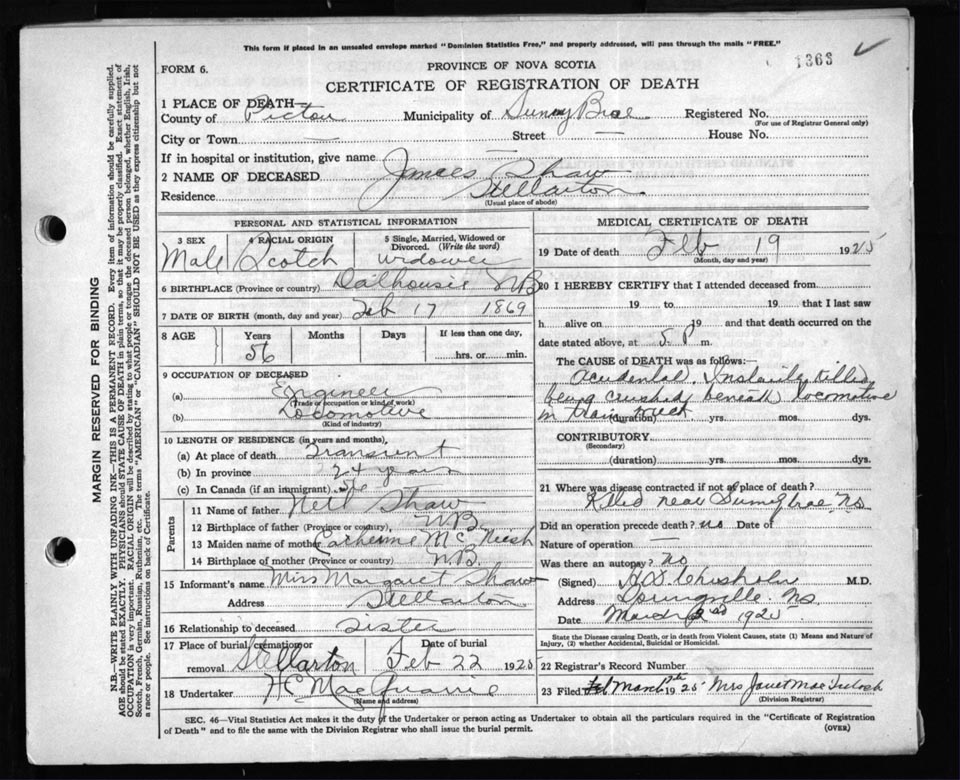 This form if placed in an unsealed envelope marked "Dominion Statistics Free," and properly addressed, will pass through the mails "FREE."
1363
FORM 6.
PROVINCE OF NOVA SCOTIA
CERTIFICATE OF REGISTRATION OF DEATH
1 PLACE OF DEATH—
County of Pictou Municipality of Sunny Brae Registered No.
(For use of Registrar General only)
City or Town — Street — House No.
If in hospital or institution, give name —
2 NAME OF DECEASED James Shaw
Residence Stellarton
(Usual place of abode)
PERSONAL AND STATISTICAL INFORMATION
3 SEX Male
4 RACIAL ORIGIN Scotch
5 Single, Married, Widowed or Divorced. (Write the word) widower
6 BIRTHPLACE (Province or country) Dalhousie NB
7 DATE OF BIRTH (month, day and year) Feb 17 1869
8 AGE Years Months Days If less than one day,
56 hrs. or min.
9 OCCUPATION OF DECEASED
(a) Engineer
(Trade, occupation or kind of work)
(b) Locomotive
(Kind of industry)
10 LENGTH OF RESIDENCE (in years and months),
(a) At place of death Transient
(b) In province 24 years
(c) In Canada (if an immigrant)
Parents
11 Name of father Neil Shaw
12 Birthplace of father (Province or country), NB
13 Maiden name of mother Catherine Mc Neish
14 Birthplace of mother (Province or country) N.B.
15 Informant's name Miss Margaret Shaw
Address Stellarton
16 Relationship to deceased Sister
17 Place of burial, cremation or removal Stellarton Date of burial Feb 22 1925
18 Undertaker H C MacQuarrie
(Name and address)
MEDICAL CERTIFICATE OF DEATH
19 Date of death Feb 19 1925
(Month, day and year)
20 I HEREBY CERTIFY that I attended deceased from
19 to 19 that I last saw
h alive on 19 and that death occurred on the
date stated above, at 5 P m.
The CAUSE of DEATH was as follows:—
Accidental. Instantly killed
being crushed beneath locomotive
in train wreck
(duration) yrs. mos. dys.
CONTRIBUTORY
(Secondary)
(duration) yrs. mos. dys.
21 Where was disease contracted if not at place of death?
Killed near Sunnybrae, NS
Did an operation precede death? no Date of
Nature of operation —
Was there an autopsy? no
(Signed) Chisholm M.D.
Address NS
Date March 2nd 1925
State the Disease causing Death, or in death from Violent Causes, state (1) Means and Nature of
Injury, (2) whether Accidental, Suicidal or Homicidal.
22 Registrar's Record Number
23 Filed March 1925 Mrs Janet MacIntosh
(Division Registrar)
SEC. 46—Vital Statistics Act makes it the duty of the Undertaker or person acting as Undertaker to obtain all the particulars required in the "Certificate of Registration
of Death" and to file the same with the Division Registrar who shall issue the burial permit.
(OVER)
MARGIN RESERVED FOR BINDING
N.B.—WRITE PLAINLY WITH UNFADING INK—THIS IS A PERMANENT RECORD. Every item of information should be carefully supplied.
AGE should be stated EXACTLY. PHYSICIANS should STATE CAUSE OF DEATH in plain terms, so that it may be properly classified. Exact statement of
OCCUPATION is very important. RACIAL ORIGIN will be described by stating to what people or tongue the deceased person belonged, whether English, Irish,
Scotch, French, German, Russian, Ruthenian, etc. The terms "AMERICAN" or "CANADIAN" SHOULD NOT BE USED as they express citizenship but not
a race or people. See instructions on back of Certificate.